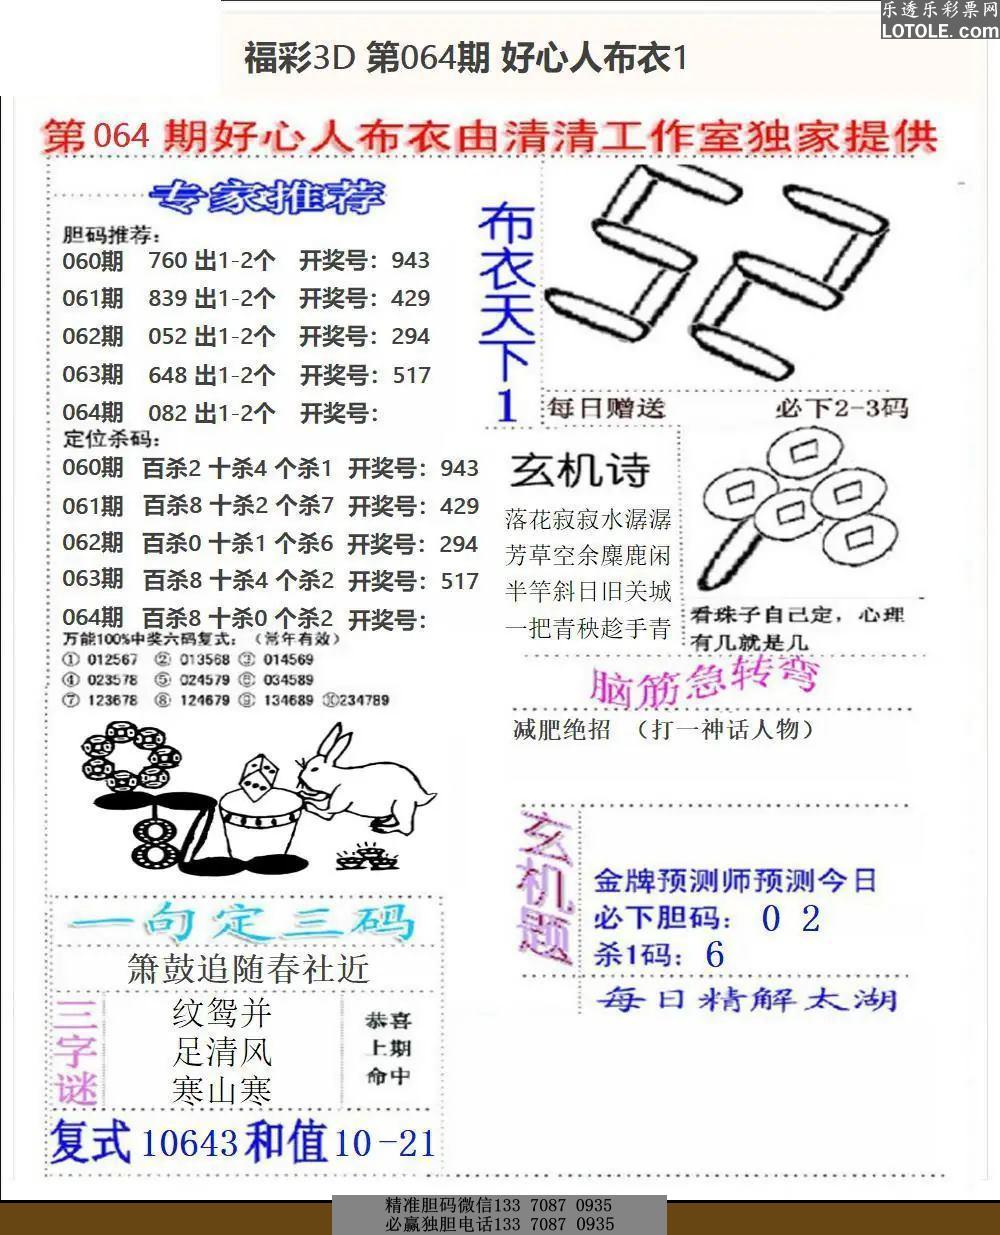 乐透乐彩票网
LOTOLE.com
福彩3D 第064期 好心人布衣1
第 064 期好心人布衣由清清工作室独家提供
专家推荐
胆码推荐：
060期 760 出1-2个 开奖号：943
061期 839 出1-2个 开奖号：429
062期 052 出1-2个 开奖号：294
063期 648 出1-2个 开奖号：517
064期 082 出1-2个 开奖号：
定位杀码：
060期 百杀2 十杀4 个杀1 开奖号：943
061期 百杀8 十杀2 个杀7 开奖号：429
062期 百杀0 十杀1 个杀6 开奖号：294
063期 百杀8 十杀4 个杀2 开奖号：517
064期 百杀8 十杀0 个杀2 开奖号：
万能100%中奖六码复式：（常年有效）
① 012567 ② 013568 ③ 014569
④ 023578 ⑤ 024579 ⑥ 034589
⑦ 123678 ⑧ 124679 ⑨ 134689 ⑩234789
布衣天下1
52
每日赠送 必下2-3码
玄机诗
落花寂寂水潺潺
芳草空余麋鹿闲
半竿斜日旧关城
一把青秧趁手青
看珠子自己定，心理
有几就是几
脑筋急转弯
减肥绝招 （打一神话人物）
玄机题
金牌预测师预测今日
必下胆码： 0 2
杀1码： 6
每日精解太湖
8
一句定三码
箫鼓追随春社近
三字谜
纹鸳并
足清风
寒山寒
恭喜
上期
命中
复式 10643 和值 10-21
精准胆码微信133 7087 0935
必赢独胆电话133 7087 0935